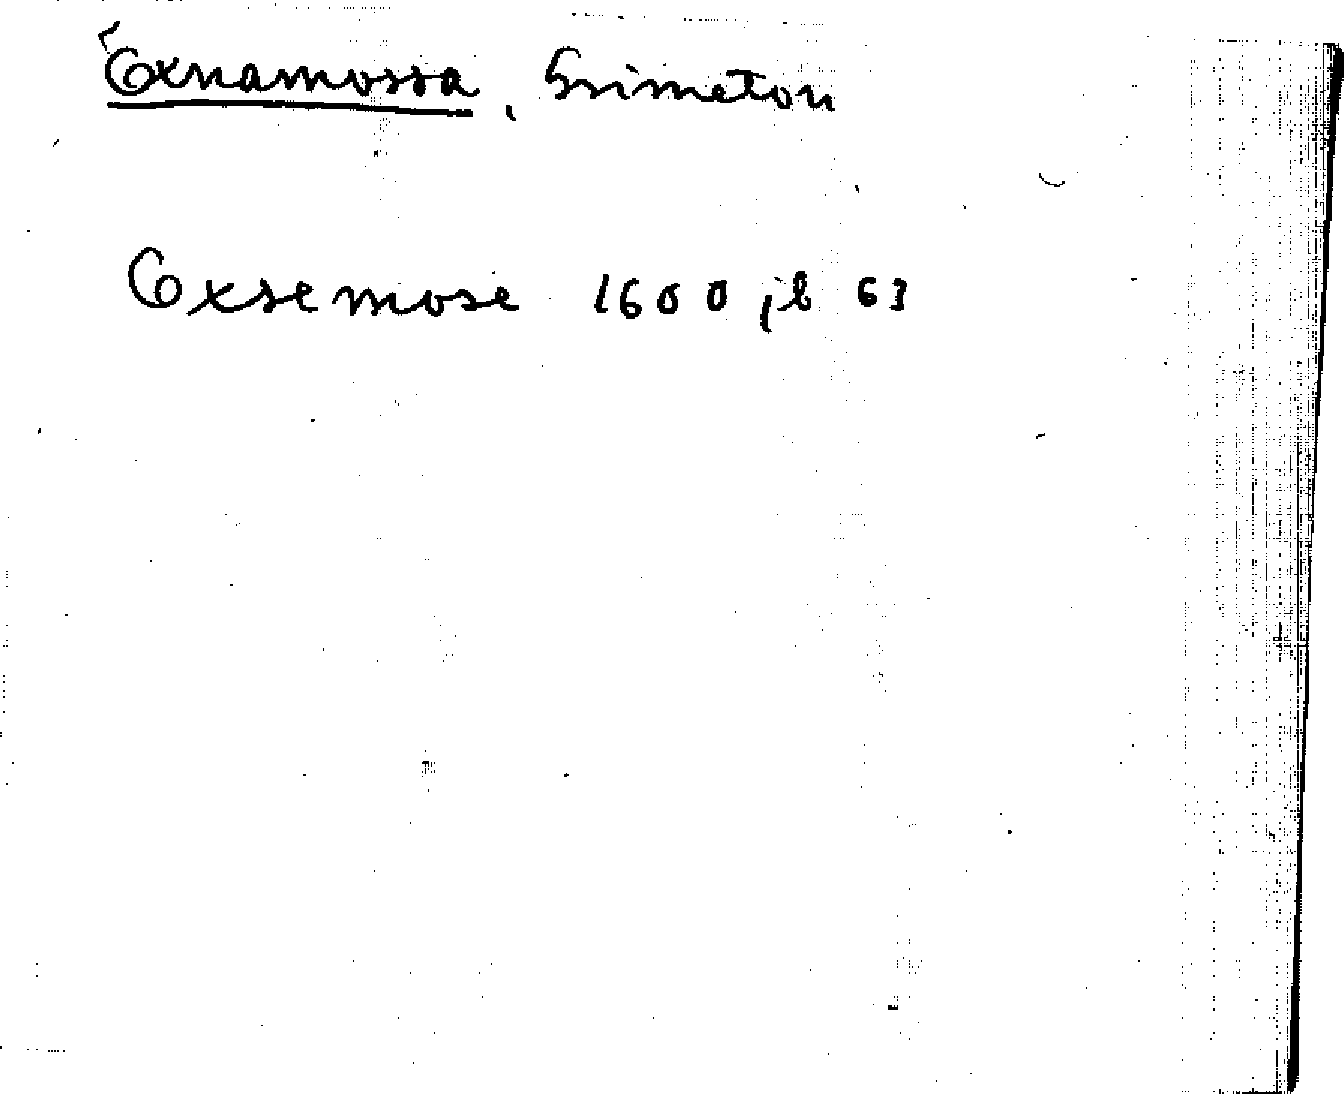 Oxnamossa, Grimeton
Oxsemose 1600 jb 63